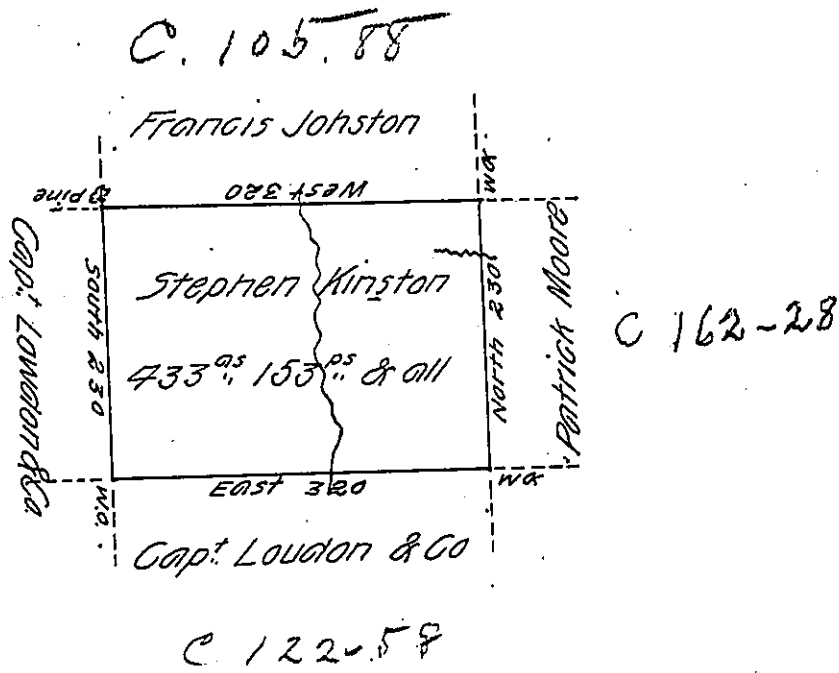 C. 105.88
Francis Johston
Pine
West 320
Wa
Capt. Lowdon & Co
South 230
Stephen Kinston
433 as 153 ps & all
North 230
Patrick Moore
C 162-28
W.O.
East 320
Wa
Capt. Loudon & Co
C 122-58